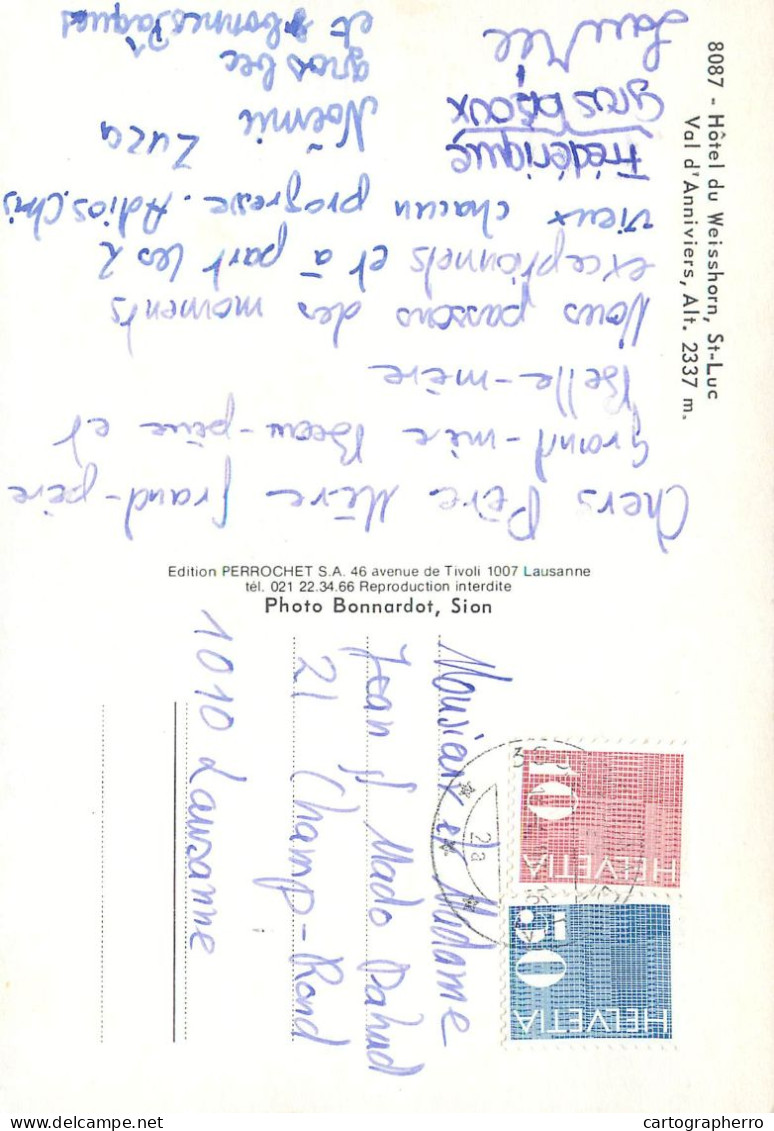 8087 - Hôtel du Weisshorn, St-Luc
Val d'Anniviers, Alt. 2337 m.
Chers Père Mère Grand-père
Grand-mère Beau-père et
Belle-mère
Nous passons des moments
exceptionnels et à part les 2
vieux chacun progresse. Adios, Chris
Frédérique
Gros bisoux
Noémie Zuza
gros bec
et bonnes Pâques
Edition PERROCHET S.A. 46 avenue de Tivoli 1007 Lausanne
tél. 021 22.34.66 Reproduction interdite
Photo Bonnardot, Sion
Monsieur et Madame
Jean & Mado Dahud
21 Champ-Rond
1010 Lausanne
10
HELVETIA
50
HELVETIA
2a
cartographerro